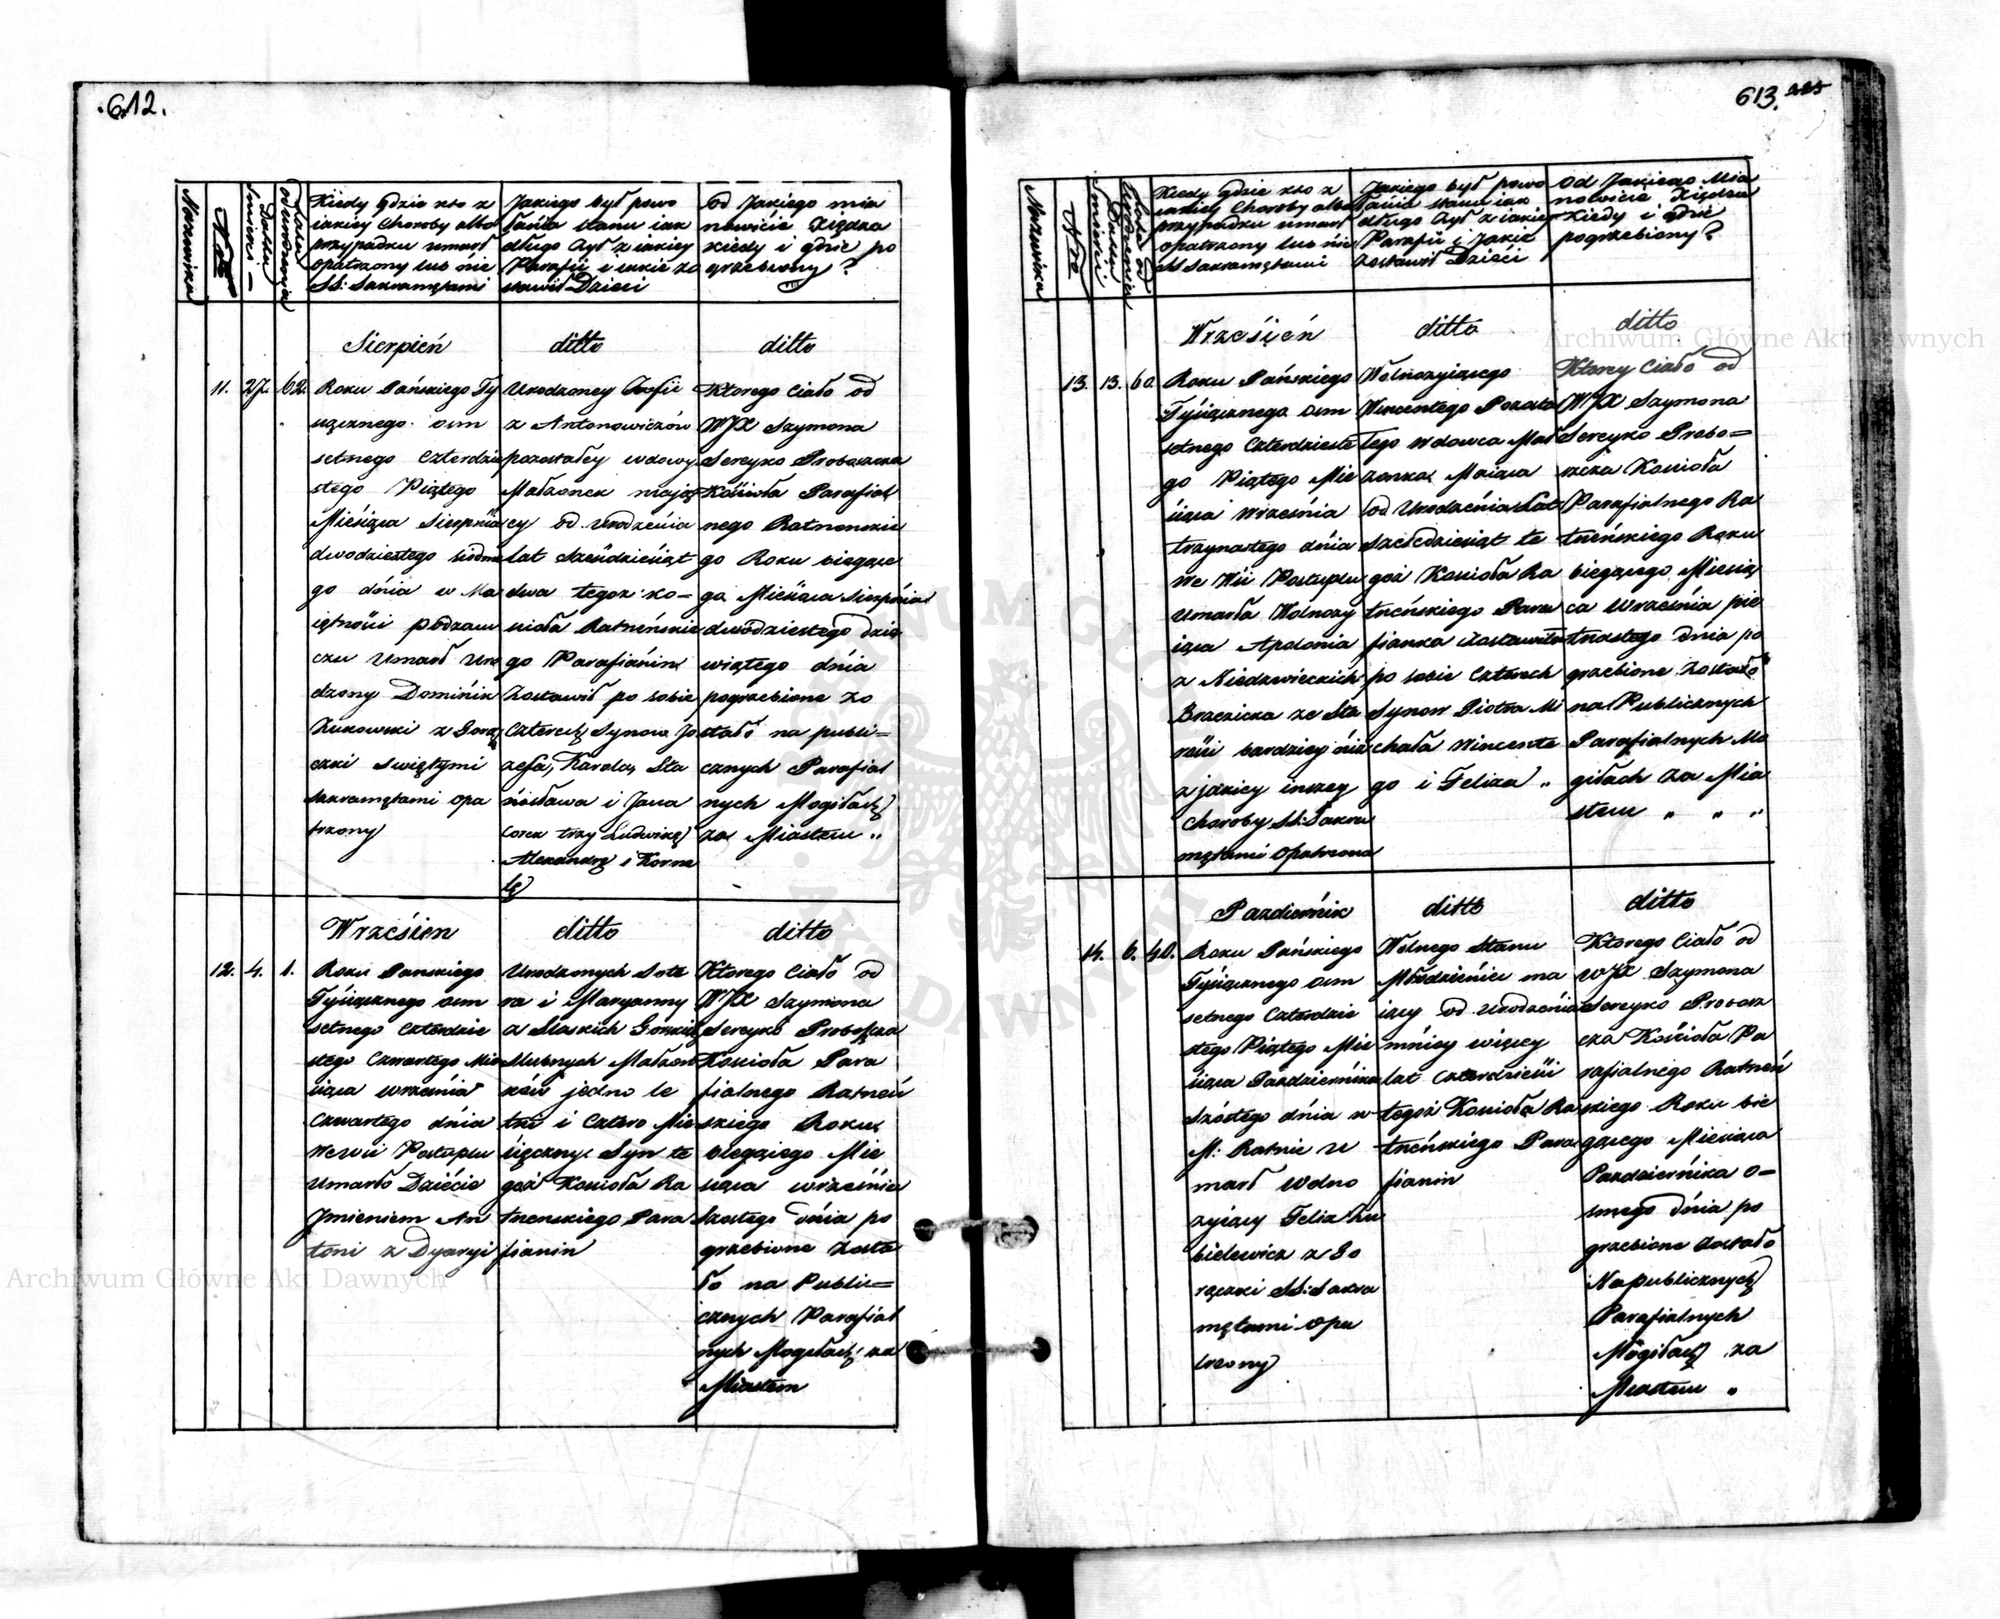 .612.
Nazwiska
Nro
Data Śmierci
Lata od Urodzenia
Kiedy Gdzie kto z
iakiey Choroby albo
przypadku umarł
opatrzony lub nie
SS: Sakramętami
Jakiego był powo
łania stanu iak
długo był z iakiey
Parafii i iakie zo
stawił Dzieci
Od Jakiego mia
nowicie Xiędza
kiedy i gdzie po
grzebiony?
Sierpień
11. 27. 62.
Roku Pańskiego Ty
siącznego osm
setnego Czterdzie
stego Piątego
Miesiąca Sierpnia
dwodziestego siodme
go dnia w Ma
iętności Podzam
czu Umarł Uro
dzony Dominik
Żukowski z Gorą
czki Swiętymi
Sakramętami opa
trzony
ditto
Urodzoney Zofii
z Antonowiczów
pozostałey wdowy
Małżonek mają
cy od urodzenia
lat sześćdziesiąt
dwa tegoż ko=
ścioła Ratneńskie
go Parafianin
Zostawił po sobie
Czterech Synow Jo
zefa, Karola, Sta
nisława i Jana
Corek trzy Ludwikę
Alexandrę i Korne
lę
ditto
Ktorego Ciało od
WJX Szymona
Sereyko Proboszcza
Kościoła Parafial
nego Ratnenskie
go Roku bieżące
go Miesiąca Sierpnia
dwódziestego dzie
wiątego dnia
pogrzebione zo
stało na publi=
cznych Parafial
nych Mogiłach
za Miastem „
Wrzesien
12. 4. 1.
Roku Panskiego
Tysiącznego osm
setnego Czterdzie
stego Czwartego Mie
siąca września
Czwartego dnia
We wsi Postuplu
Umarło Dziécie
Jmieniem An
toni z Dyaryi
ditto
Urodzonych Sote
ra i Maryanny
z Slaskich Gorskich
Slubnych Małżon
ków jedno le
tni i Cztero Mie
sięczny Syn te
goż Kościoła Ra
tnenskiego Para
fianin
ditto
Ktorego Ciało od
WJX Szymona
Sereyko Proboszcza
Kościoła Para
fialnego Ratneń
skiego Roku
biegącego Mie
siąca września
Szostego dnia po
grzebione Zosta
ło na Publi=
cznych Parafial
nych Mogiłach za
Miastem
613.
Nazwiska
Nro
Data Śmierci
Lata od Urodzenia
Kiedy Gdzie kto z
iakiey Choroby albo
przypadku umarł
opatrzony lub nie
SS Sakramętami
Jakiego był powo
łania stanu iak
długo był z iakiey
Parafii i Jakie
zostawił Dzieci
Od Jakiego Mia
nowicie Xiędza
Kiedy i gdzie
pogrzebiony?
Wrzesień
13. 13. 60.
Roku Pańskiego
Tysiącznego osm
setnego Czterdzieste
go Piątego Mie
siąca Września
trzynastego dnia
We Wsi Postuplu
Umarła Wolnoży
iąca Apolonia
z Niedzwieckich
Braczicka ze Sta
rości bardziey niż
z jakiey inszey
Choroby SS: Sakra
mętami Opatrzona
ditto
Wolnożyiącego
Wincentego Pozosta
łego Wdowca Mał
żonka Maiąca
od Urodzenia Lat
Szescdziesiąt te
goż Kosioła Ra
tneńskiego Para
fianka zostawiła
po sobie Czterech
Synow Piotra Mi
chała Wincente
go i Felixa „
ditto
Ktorey Ciało od
WJX Szymona
Sereyko Probo=
szcza Kosioła
Parafialnego Ra
tneńskiego Roku
biegącego Miesią
ca Września pię
tnastego dnia po
grzebione Zostało
na Publicznych
Parafialnych Mo
giłach za Mia
stem „ „ „
Pazdziernik
14. 6. 40.
Roku Pańskiego
Tysiącznego osm
setnego Czterdzie
stego Piątego Mie
siąca Pazdziernika
Szóstego dnia w
M: Ratnie u
marł Wolno
żyiący Felix Ku
bielewicz z Go
rączki SS: Sakra
mętami Opa
trzony
ditto
Wolnego Stanu
Młodzieniec ma
iący od urodzenia
mniey więcey
lat Czterdzieści
tegoż Kosioła Ra
tneńskiego Para
fianin
ditto
Ktorego Ciało od
WJX Szymona
Sereyko Probosz
cza Kościoła Pa
rafialnego Ratneń
skiego Roku bie
gącego Miesiąca
Pazdziernika o=
smego dnia po
grzebione zostało
Na publicznych
Parafialnych
Mogiłach za
Miastem „
Archiwum Główne Akt Dawnych
Archiwum Główne Akt Dawnych